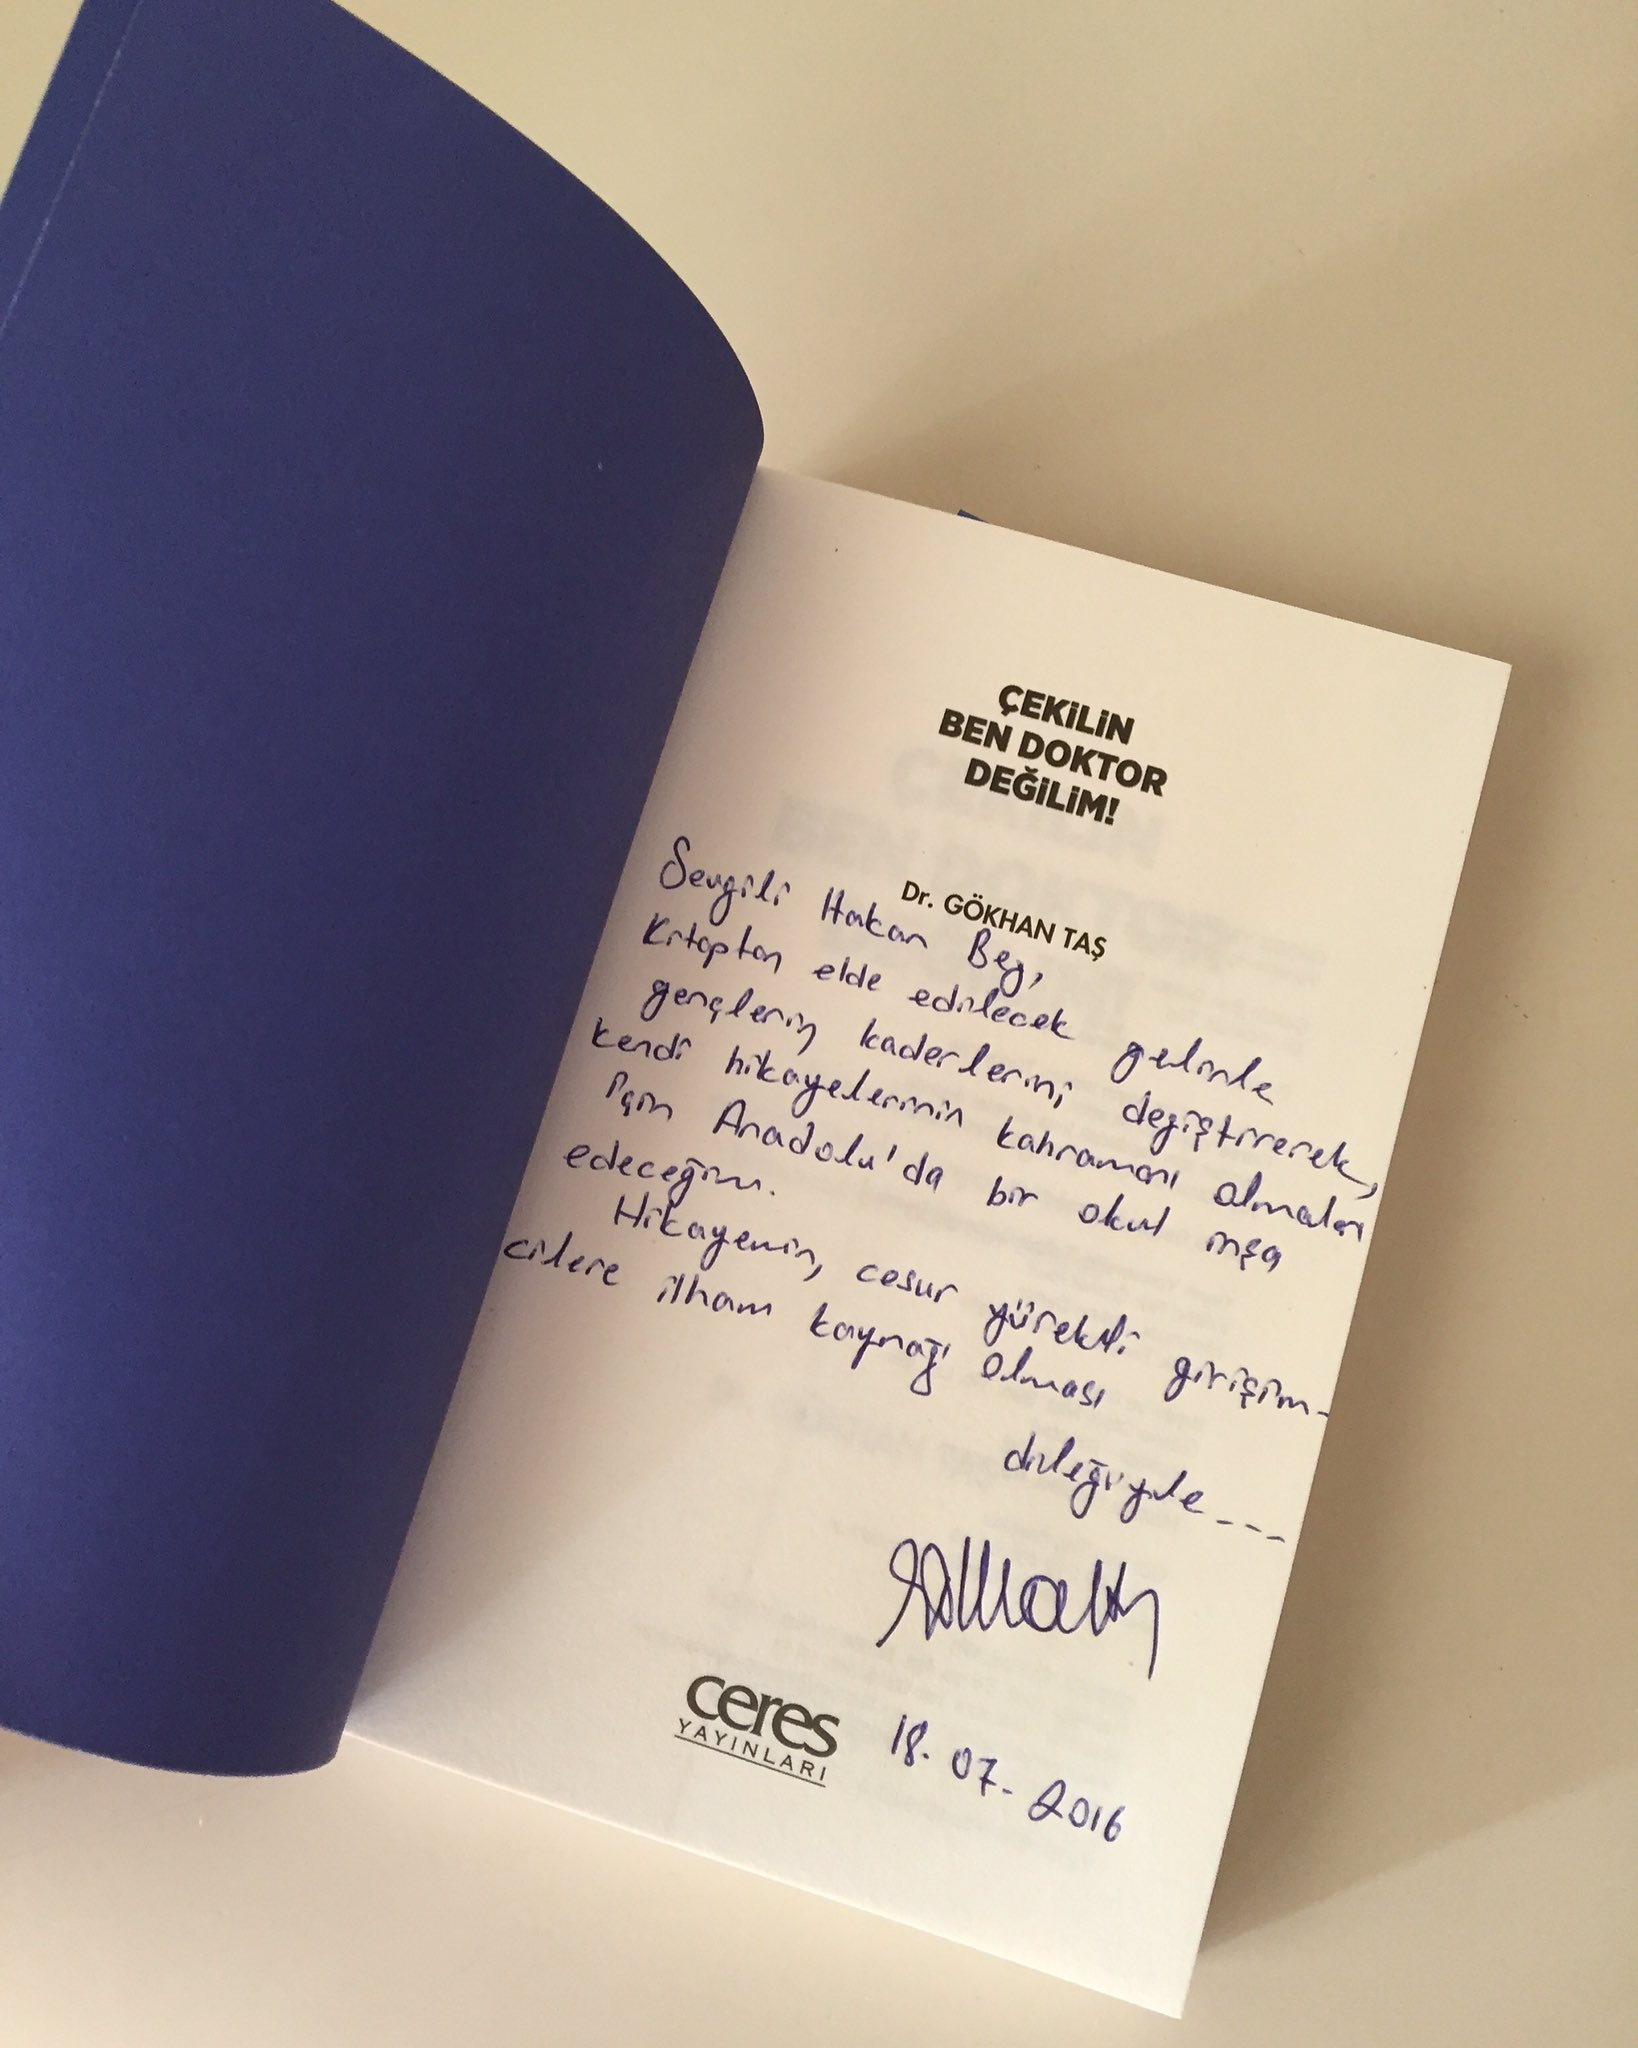 ÇEKİLİN
BEN DOKTOR
DEĞİLİM!
Dr. GÖKHAN TAŞ
Sevgili Hakan Bey,
Kitaptan elde edilecek gelirle
gençlerin kaderlerini değiştirerek,
kendi hikayelerinin kahramanı olmaları
için Anadolu'da bir okul inşa
edeceğim.
Hikayenin, cesur yürekli girişim-
cilere ilham kaynağı olması
dileğiyle----
ceres
YAYINLARI
18.07.2016